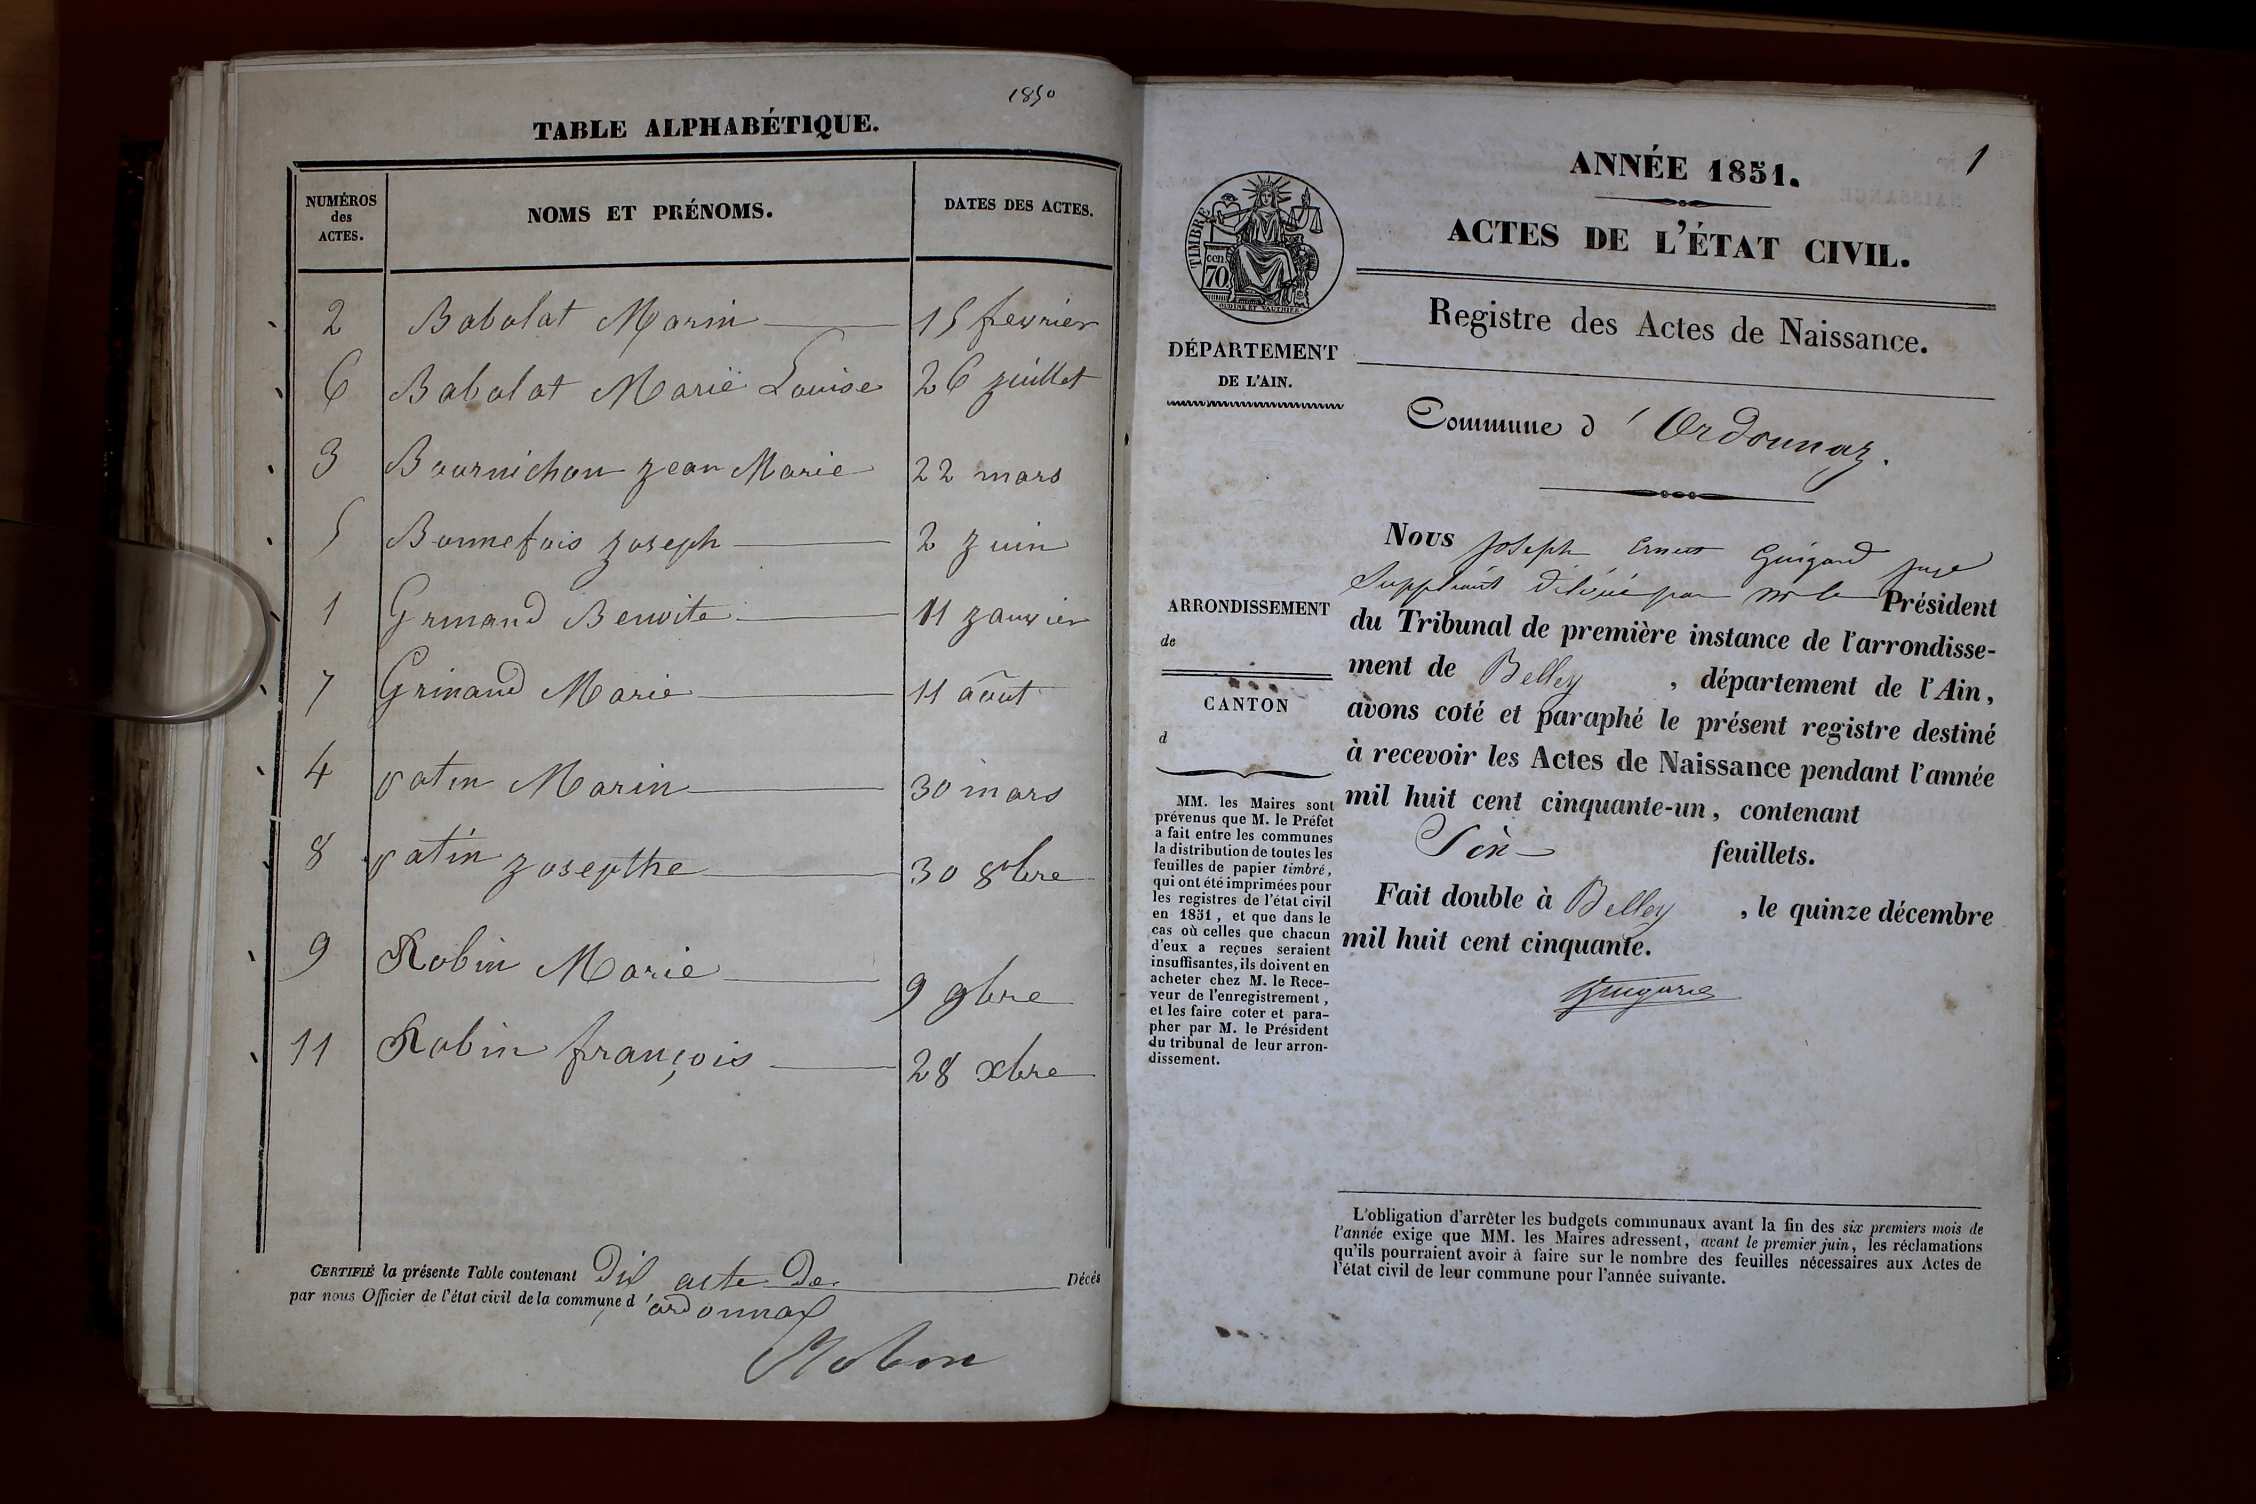 1850
TABLE ALPHABÉTIQUE.
NUMÉROS des ACTES. NOMS ET PRÉNOMS. DATES DES ACTES.
2 Babolat Marin 15 fevrier
6 Babolat Marie Louise 26 juillet
3 Bournichon jean Marie 22 mars
5 Bonnefois joseph 2 juin
1 Grinand Benoite 11 janvier
7 Grinand Marie 11 août
4 patin Marin 30 mars
8 patin josepthe 30 8bre
9 Robin Marie 9 9bre
11 Robin françois 28 xbre
CERTIFIÉ la présente Table contenant Dix acte De Décès
par nous Officier de l'état civil de la commune d'ordonnaz
Robin
1
ANNÉE 1851.
ACTES DE L'ÉTAT CIVIL.
TIMBRE
cen.
70
OUDINÉ ET GAUTHIER
Registre des Actes de Naissance.
DÉPARTEMENT
DE L'AIN.
Commune d'Ordonnaz.
Nous Joseph Ernest Guigard juge
Suppléant délégué par Mr le Président
du Tribunal de première instance de l'arrondisse-
ment de Belley, département de l'Ain,
avons coté et paraphé le présent registre destiné
à recevoir les Actes de Naissance pendant l'année
mil huit cent cinquante-un, contenant
feuillets.
Fait double à Belley, le quinze décembre
mil huit cent cinquante.
ARRONDISSEMENT
de
CANTON
d
MM. les Maires sont
prévenus que M. le Préfet
a fait entre les communes
la distribution de toutes les
feuilles de papier timbré,
qui ont été imprimées pour
les registres de l'état civil
en 1851, et que dans le
cas où celles que chacun
d'eux a reçues seraient
insuffisantes, ils doivent en
acheter chez M. le Rece-
veur de l'enregistrement,
et les faire coter et para-
pher par M. le Président
du tribunal de leur arron-
dissement.
L'obligation d'arrêter les budgets communaux avant la fin des six premiers mois de
l'année exige que MM. les Maires adressent, avant le premier juin, les réclamations
qu'ils pourraient avoir à faire sur le nombre des feuilles nécessaires aux Actes de
l'état civil de leur commune pour l'année suivante.